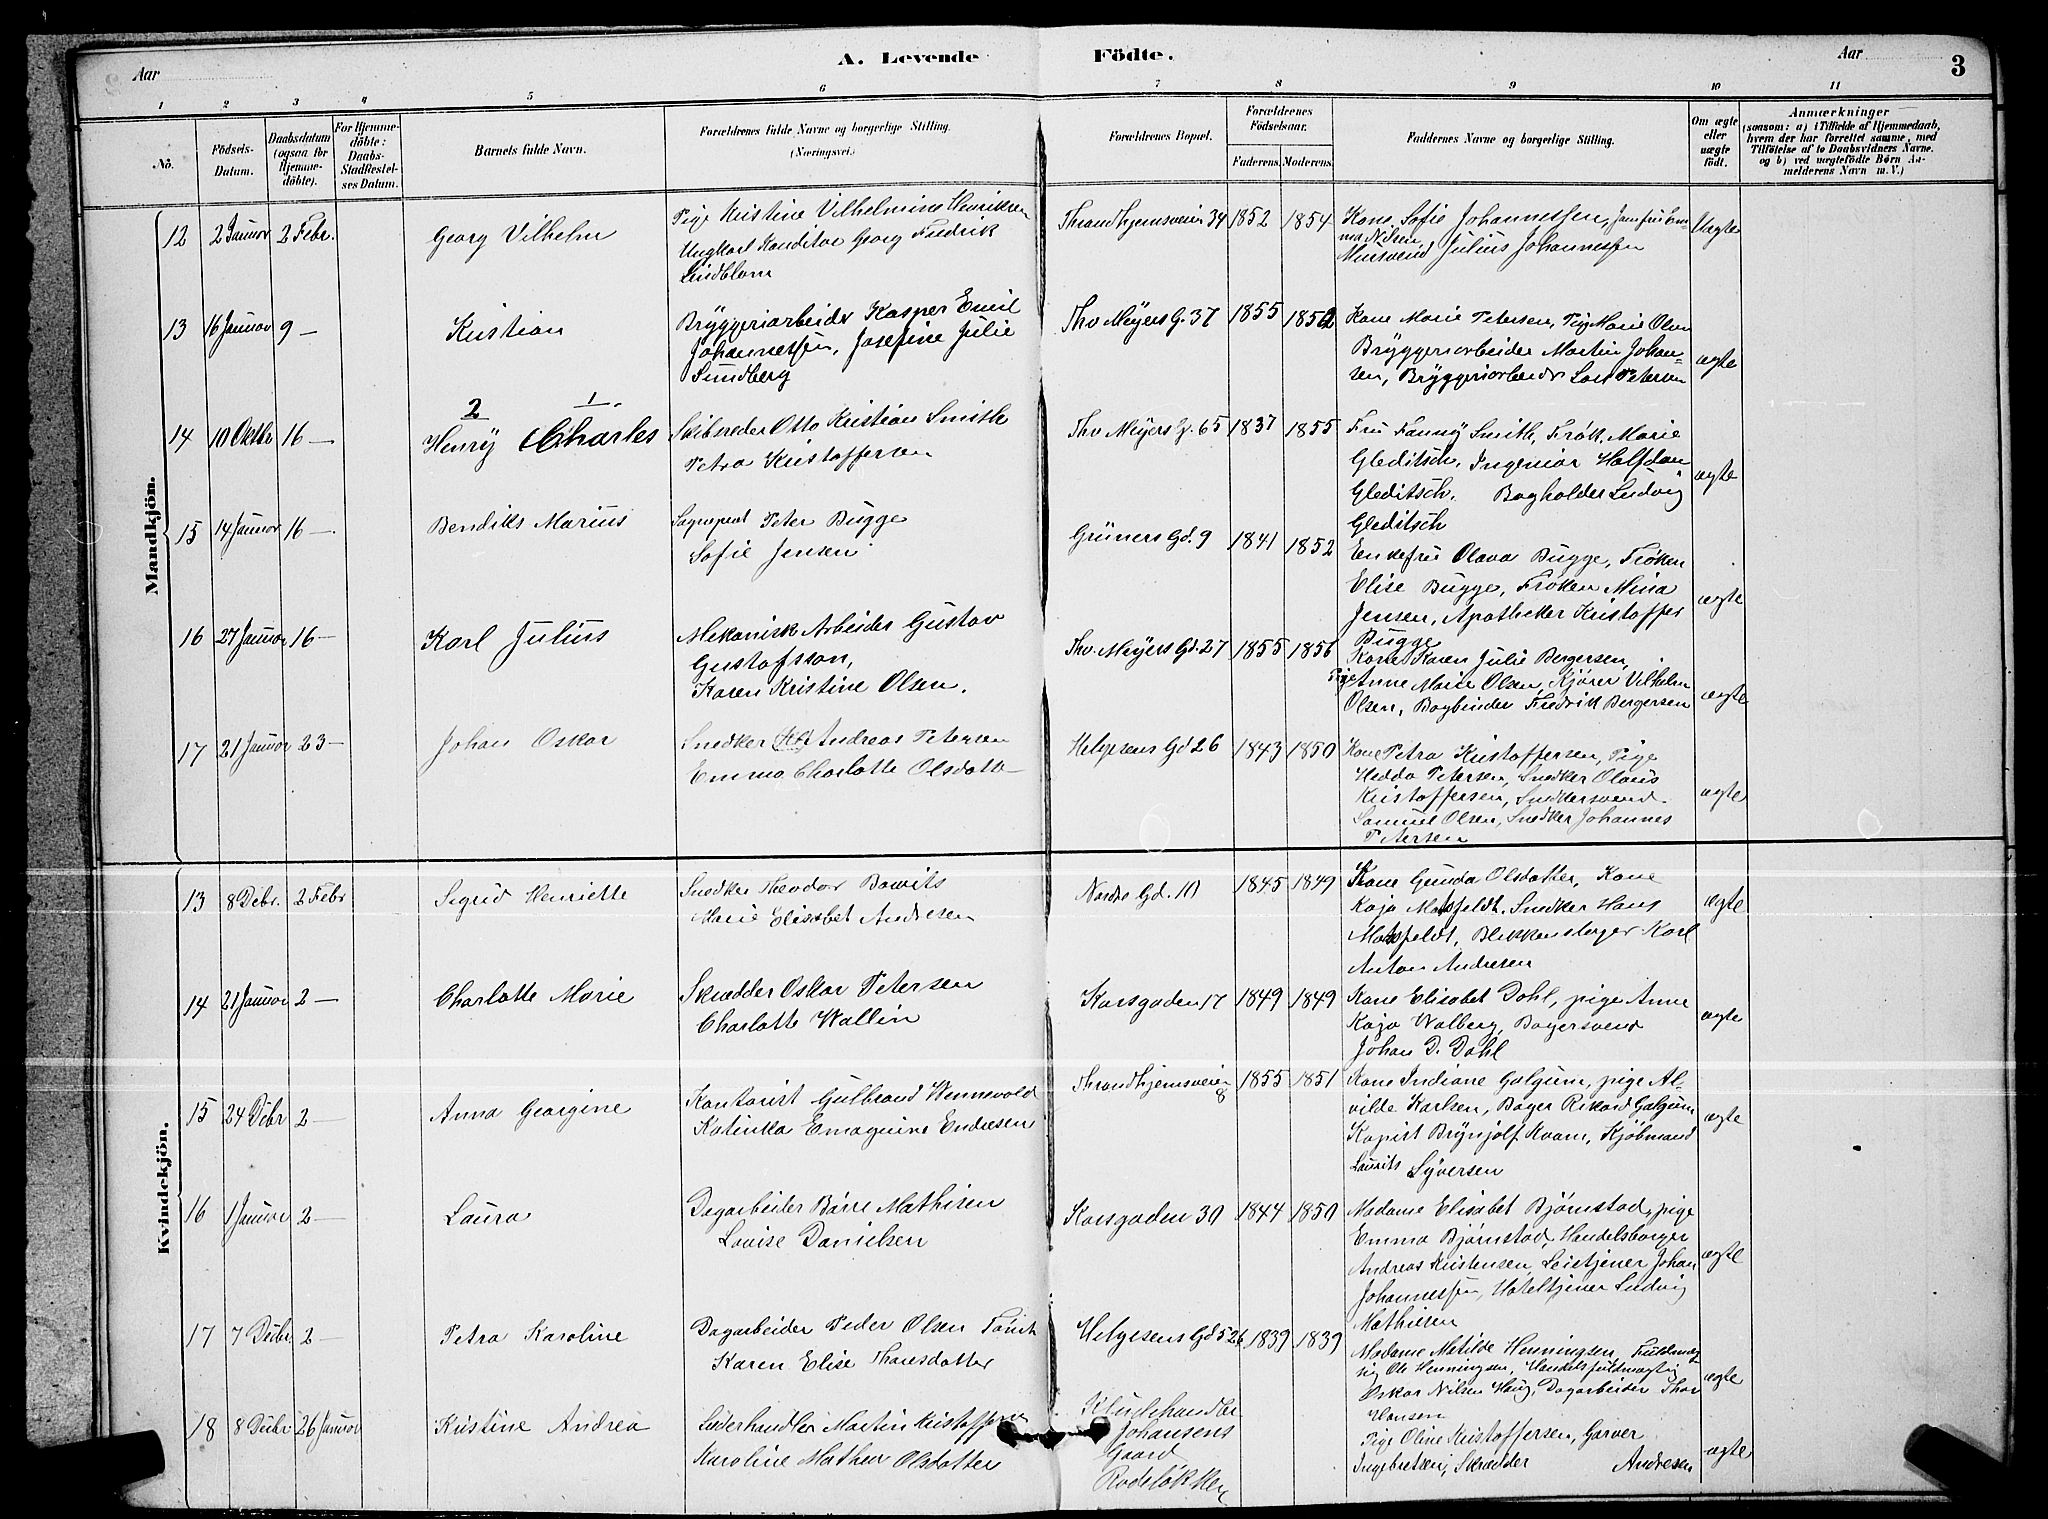 Aar
A. Levende
Födte.
Aar
3
1 2 3 4 5 6 7 8 9 10 11
No.
Födsels-
Datum.
Daabsdatum
(ogsaa for
Hjemme-
döbte).
For Hjemme-
döbte:
Daabs-
Stadfæstel-
ses Datum.
Barnets fulde Navn.
Forældrenes fulde Navne og borgerlige Stilling.
(Næringsvei.)
Forældrenes Bopæl.
Forældrenes
Födselsaar.
Faderens.
Moderens.
Faddernes Navne og borgerlige Stilling.
Om ægte
eller
uægte
födt.
Anmærkninger
(saasom: a) i Tilfælde af Hjemmedaab,
hvem der har forrettet samme, med
Tilföielse af to Daabsvidners Navne.
og b) ved uægtefödte Börn An-
melderens Navn m. V.)
Mandkjön.
12 2 Januar 2 Febr.
Georg Vilhelm
Pige Kristine Vilhelmine Henriksen
Ungkarl Konditor Georg Fredrik
Lindblom
Throndhjemsveien 34 1852 1854
Kone Sofie Johannessen, Jomfru Em-
ma Nilsen
Mursvend Julius Johannessen
Uægte
13 16 Januar 9 —
Kristian
Bryggeriarbeider Kasper Emil
Johannessen, Josefine Julie
Sundberg
Thv Meyers G. 37 1855 1852
Kone Marie Petersen, Pige Marie Olsen
Bryggeriarbeider Martin Johan-
sen, Bryggeriarbeider Petersen
ægte
14 10 Oktbr 16 —
2 1.
Henry Charles
Skibsreder Otto Kristian Smith
Petra Kristoffersen
Thv Meyers G. 65 1837 1855
Fru Fanny Smith, Frøk. Marie
Gleditsch, Ingeniør Halfdan
Gleditsch. Bogholder Ludvig
Gleditsch
ægte
15 14 Januar 16 —
Bendiks Marius
Peter Bugge
Sofie Jensen
Grüners Gd. 9 1841 1852
Enkefru Olava Bugge, Frøken
Elise Bugge, Frøken Mina
Jensen, Apotheker Kristoffer
Bugge
ægte
16 27 Januar 16 —
Karl Julius
Mekanisk Arbeider Gustav
Gustafsson,
Karen Kristine Olsen.
Thv. Meyers Gd. 27 1855 1856
Kone Karen Julie Bergersen,
Pige Anne Marie Olsen, Kjører Vilhelm
Olsen, Bogbinder Fredrik Bergersen
ægte
17 21 Januar 23 —
Johan Oskar
Snedker Andreas Petersen
Emma Charlotte Olsdatter
Helgesens Gd 26 1843 1850
Kone Petra Kristoffersen, Pige
Hedda Petersen, Snedker Olaus
Kristoffersen, Snedkersvend
Samuel Olsen, Snedker Johannes
Petersen
ægte
Kvindekjön.
13 8 Debr. 2 Febr
Sigrid Henriette
Snedker Theodor
Marie Elisabet Andresen
Nordre Gd. 10 1845 1849
Kone Gunda Olsdatter, Kone
Kaja Snedker Hans
Blikkenslager Karl
Anton Andresen
ægte
14 21 Januar 2 —
Charlotte Marie
Skrædder Oskar Petersen
Charlotte Wallin
Korsgaden 17 1849 1849
Kone Elisabet Dahl, pige Anne
Kaja Walberg, Bagersvend
Johan D. Dahl
ægte
15 24 Debr 2 —
Anna Georgine
Kontorist Gulbrand Wennevold
Katinka Emagnine Endresen
Throndhjemsveien
8 1855 1851
Kone Indiane Galgum, pige Al-
vilde Karlsen, Bager Rikard Galgum
Kopist Brynjolf Kvam, Kjøbmand
Laurits Syversen
ægte
16 1 Januar 2 —
Laura
Dagarbeider Børre Mathisen
Lovise Danielsen
Korsgaden 30 1844 1850
Madame Elisabet Bjørnstad, pige
Emma Bjørnstad, Handelsborger
Andreas Kristensen, Leietjener Johan
Johannessen, Hoteltjener Ludvig
Mathiesen
ægte
17 7 Debr 2 —
Petra Karoline
Dagarbeider Peder Olsen
Karen Elise Thoresdatter
Helgesens Gd 1839 1839
Madame Matilde Henningsen, Fuldmæg-
tig Ole Henningsen, Handelsfuldmægtig
Oskar Nilsen Haug, Dagarbeider Thor
Hansen
ægte
18 8 Debr 26 Januar
Kristine Andrea
Læderhandler Martin Kristoffersen
Karoline Mathea Olsdatter
Kludehandler
Johansens
Gaard
Rodeløkken
Pige Oline Kristoffersen, Garver
Ingebretsen, Skrædder Andresen
ægte